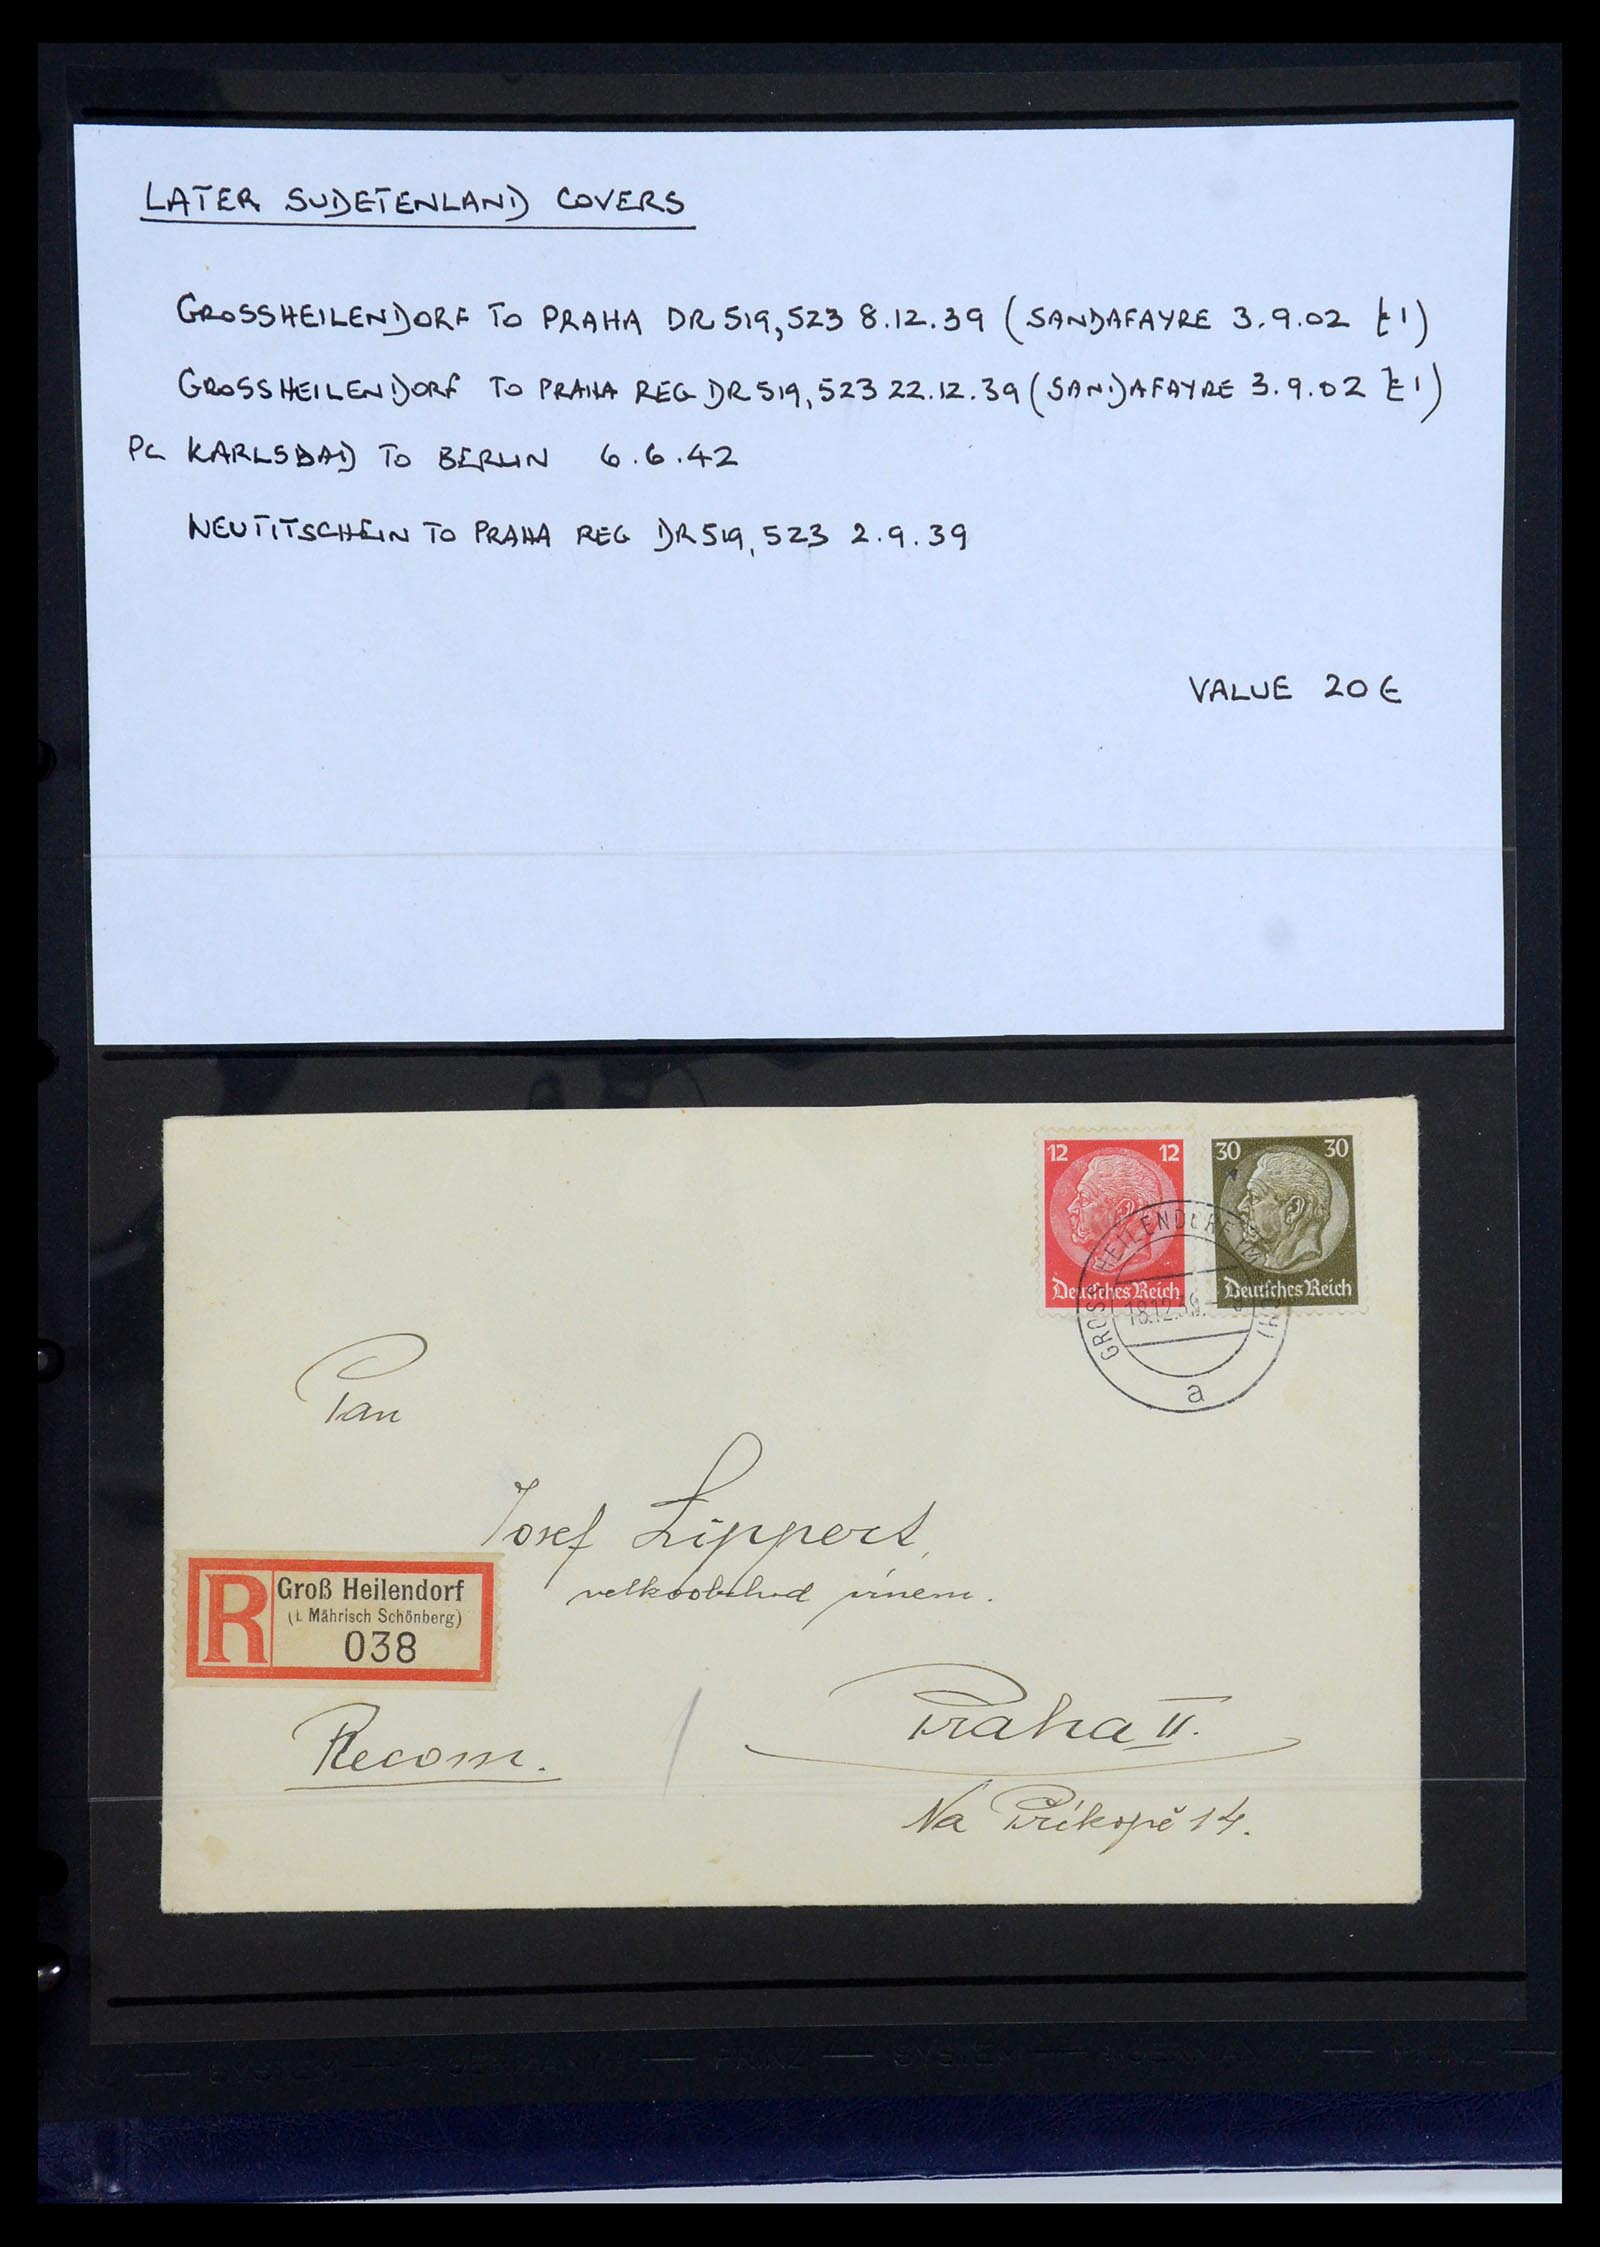 LATER SUDETENLAND COVERS
GROSSHEILENDORF TO PRAHA DR 519, 523 8.12.39 (SANDAFAYRE 3.9.02 £1)
GROSSHEILENDORF TO PRAHA REG DR 519, 523 22.12.39 (SANDAFAYRE 3.9.02 £1)
PC KARLSBAD TO BERLIN 6.6.42
NEUTITSCHEIN TO PRAHA REG DR 519, 523 2.9.39
VALUE 20 €
12 12 30 30
Deutsches Reich Deutsches Reich
GROSS HEILENDORF
18.12.39
a
Pan
Josef Lippert,
velkoobchod vínem.
R
Groß Heilendorf
Mährisch Schönberg)
038
Recom.
Praha II.
Na Příkopě 14.
SYSTEM GERMANY PRINZ SYSTEM GERMANY PRINZ